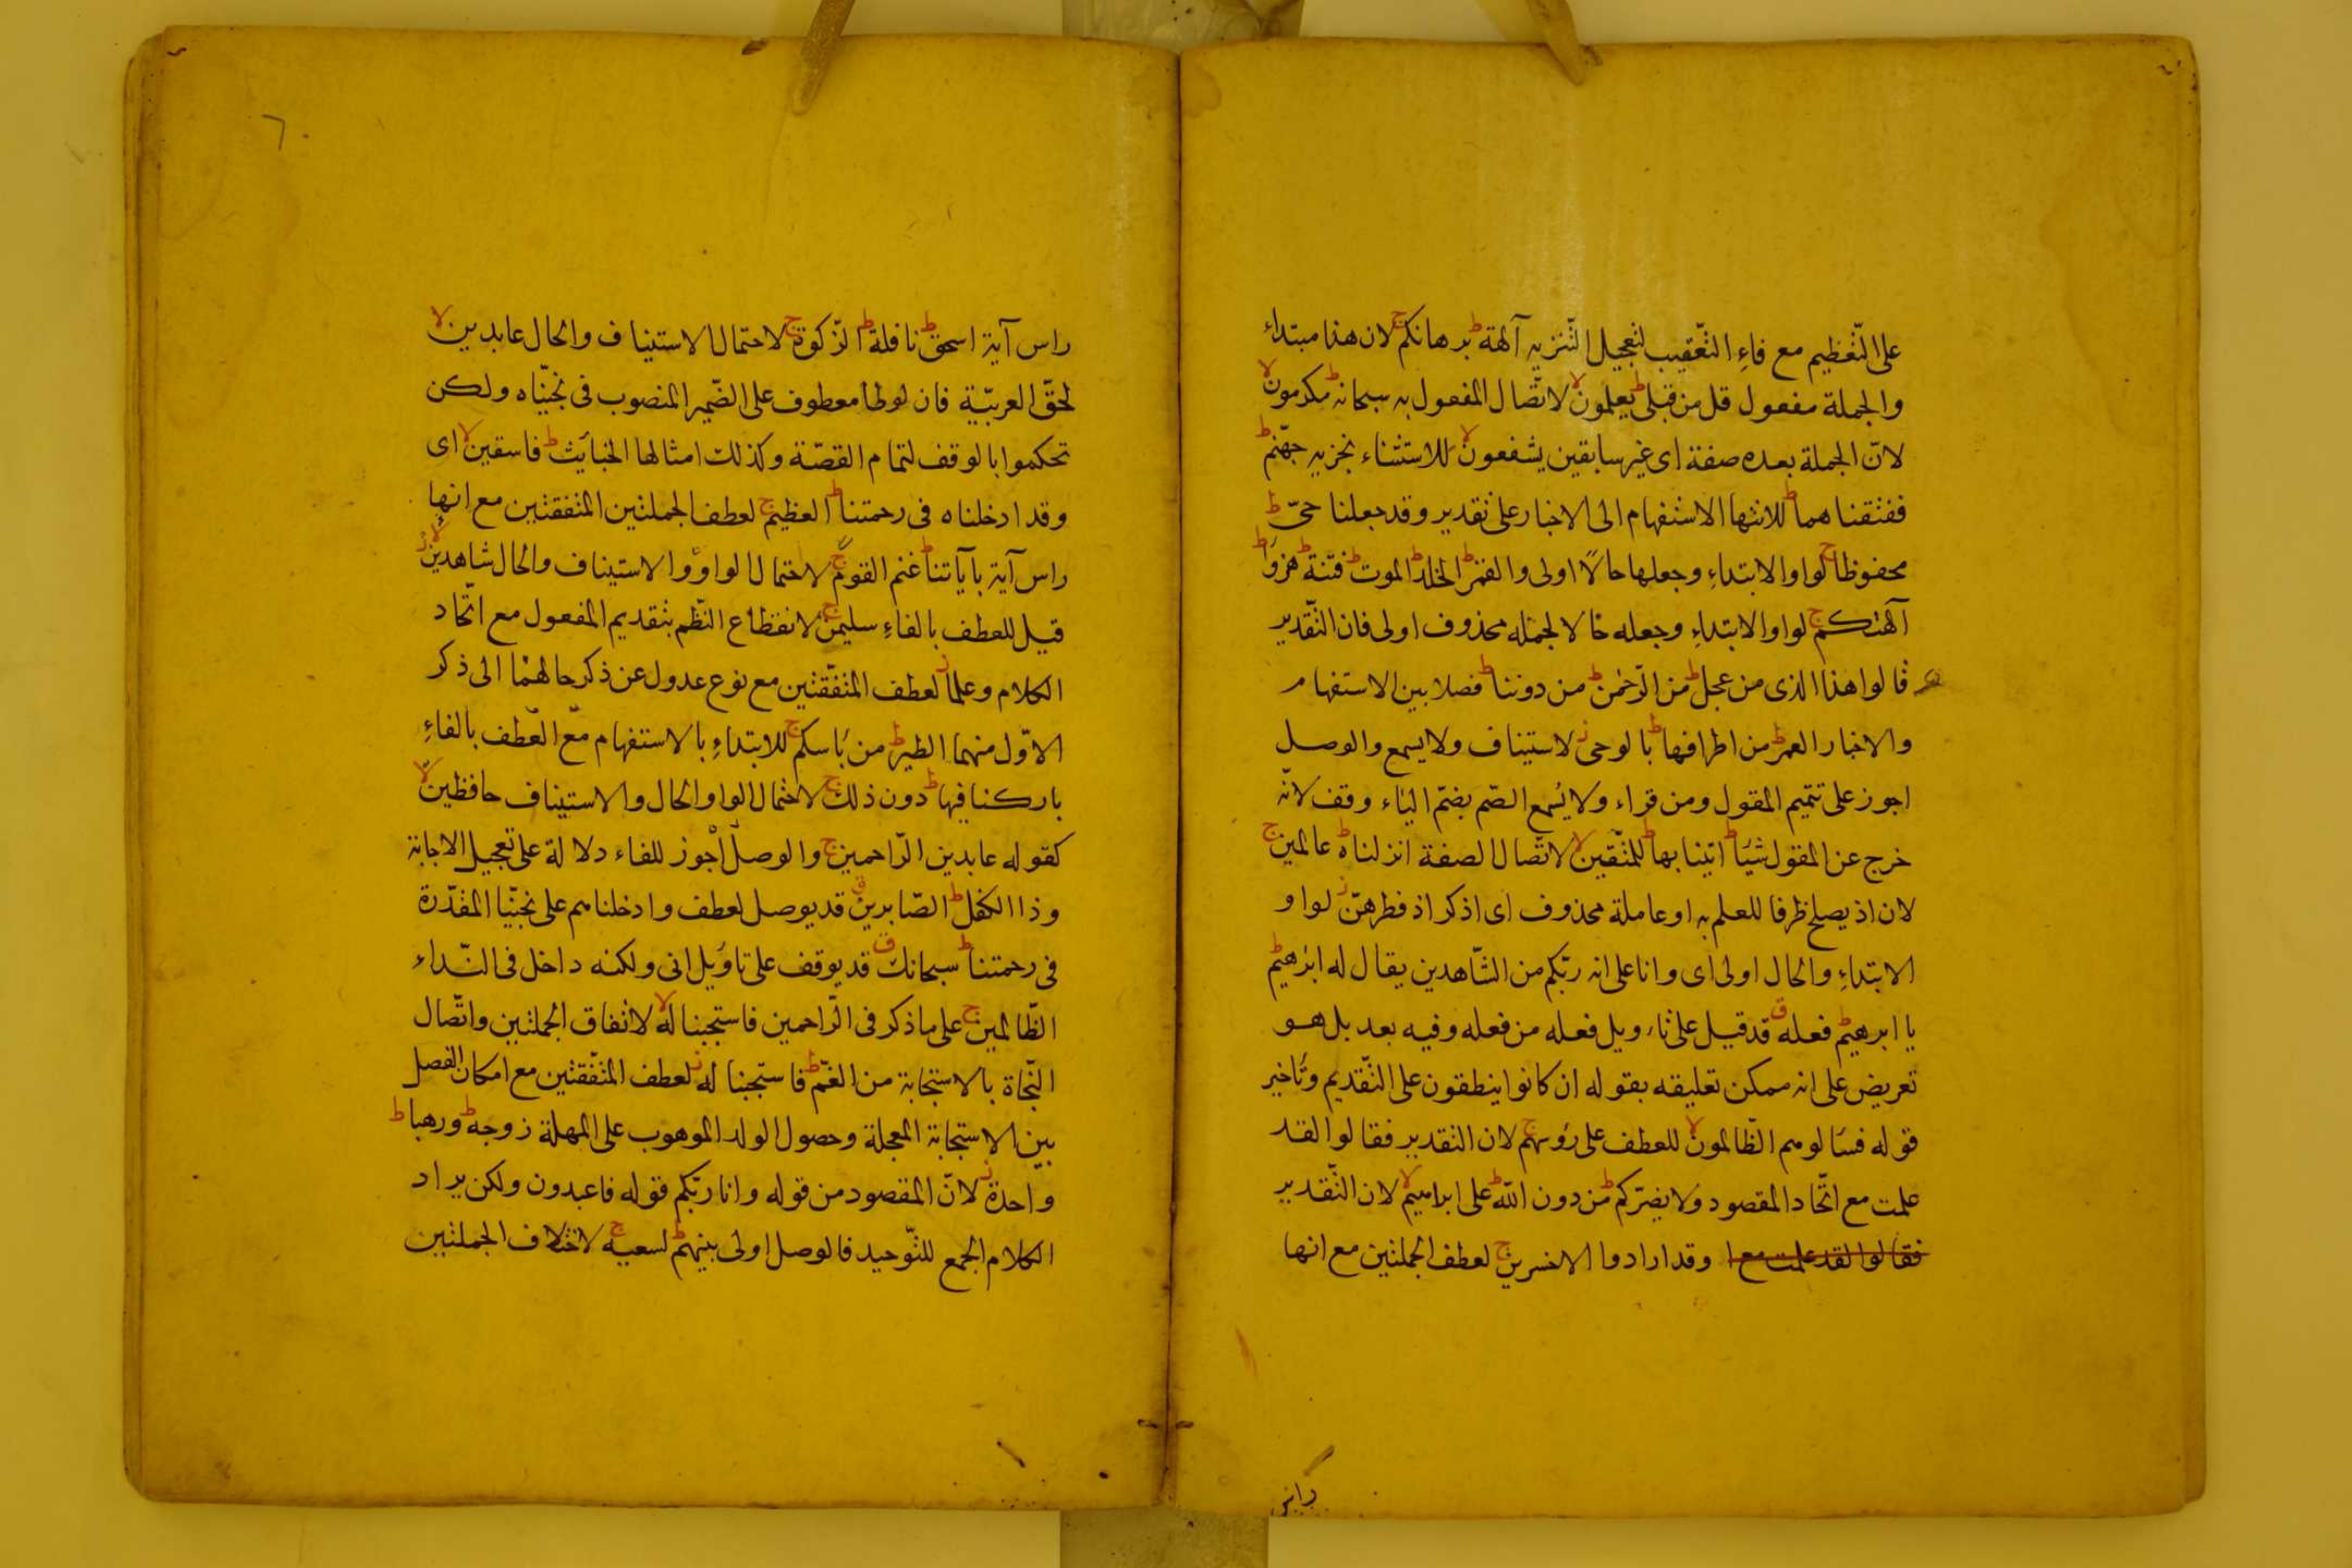 على التّعظيم مع فاءِ التّعقيب لتعجيل التّنزيه آلهة ط برهانكم ج لان هذا مبتداء
والجملة مفعول قل من قبلى ط يعلمون لا لاتّصال المفعول به سبحانه ط مكرمون لا
لانّ الجملة بعده صفة اى غير سابقين يشفعون لا للاستثناء نجزيه جهّنم ط
ففتقناهما ط للانتهاا الاستفهام الى الاخبار على تقدير وقد جعلنا حىّ ط
محفوظا ج لواو الابتداءِ وجعلها حالاً اولى والقمر ط الخلد ط الموت ط فتنة ط هزوًا ط
آلهتكم ج لواو الابتداءِ وجعله حالا لجمله محذوف اولى فان التّقدير
قالوا هذا الذى من عجل ط من الرّحمن ط من دوننا ط فصلا بين الاستفهام
والاخبار العمر ط من اطرافها ط بالوحى ز لاستيناف ولا يسمع والوصل
اجوز على تتميم المقول ومن قراء ولا يُسمع الصّم بضمّ الياء وقف لانّه
خرج عن المقول شيًا ط اتينا بها ط للمتّقين لا لاتّصال الصفة انزلناه ط عالمين ج
لان اذ يصلح ظرفا للعلم به او عاملة محذوف اى اذكر اذ فطرهنّ ز لواو
الابتداءِ والحال اولى اى وانا على انه ربّكم من الشّاهدين يقال له ابرهيم ط
يا ابرهيم ط فعله ق قد قيل على تاويل فعله من فعله وفيه بعد بل هو
تعريض على انه ممكن تعليقه بقوله ان كانوا ينطقون على التّقديم وتاخير
قوله فسالوهم الظّالمون لا للعطف على رؤسهم ج لان التقدير فقالوا لقد
علمت مع اتّحاد المقصود ولا يضرّكم ط من دون اللّه ط على ابراهيم لا لان التّقدير
فقالوا لقد علمت مع ا وقد ارادوا الاخسرين ج لعطف الجملتين مع انها
راس
راس آية اسحق ط نافلة ط الزّكوة ج لاحتمال الاستيناف والحال عابدين لا
لحقّ العربيّة فان لوطا معطوف على الضّمير المنصوب فى نجيّناه ولكن
تحكموا بالوقف لتمام القصّة وكذلك امثالها الخبايث ط فاسقين لا اى
وقد ادخلناه فى رحمتنا ط العظيم ج لعطف الجملتين المتفقتين مع انها
راس آية بآياتنا ط غنم القوم ج لاحتمال الواو والاستيناف والحال شاهدين لا
قيل للعطف بالفاءِ سليمن ج لانقطاع النّظم بتقديم المفعول مع اتّحاد
الكلام وعلما ز لعطف المتّفقتين مع نوع عدول عن ذكر حالهما الى ذكر
الاوّل منهما الطير ط من باسكم ج للابتداءِ بالاستفهام مع العطف بالفاءِ
باركنا فيها ط دون ذلك ج لاحتمال الواو الحال والاستيناف حافظين لا
كقوله عابدين الرّاحمين ج والوصل اجوز للفاء دلالة على تعجيل الاجابة
وذا الكفل ط الصّابرين ق قد يوصل لعطف وادخلناهم على نجّينا المقدّرة
فى رحمتنا ط سبحانك ق قد يوقف على تاويل انى ولكنه داخل فى النّداء
الظّالمين ج على ما ذكر فى الرّاحمين فاستجبنا له لا لاتفاق الجملتين واتّصال
النّجاة بالاستجابة من الغمّ ط فاستجبنا له ز لعطف المتّفقتين مع امكان الفصل
بين الاستجابة المعجلة وحصول الولد الموهوب على المهلة زوجه ط ورهبا ط
واحدة ز لانّ المقصود من قوله وانا ربّكم قوله فاعبدون ولكن يراد
الكلام الجمع للتّوحيد فالوصل اولى بينهم ط لسعيه ج لاختلاف الجملتين